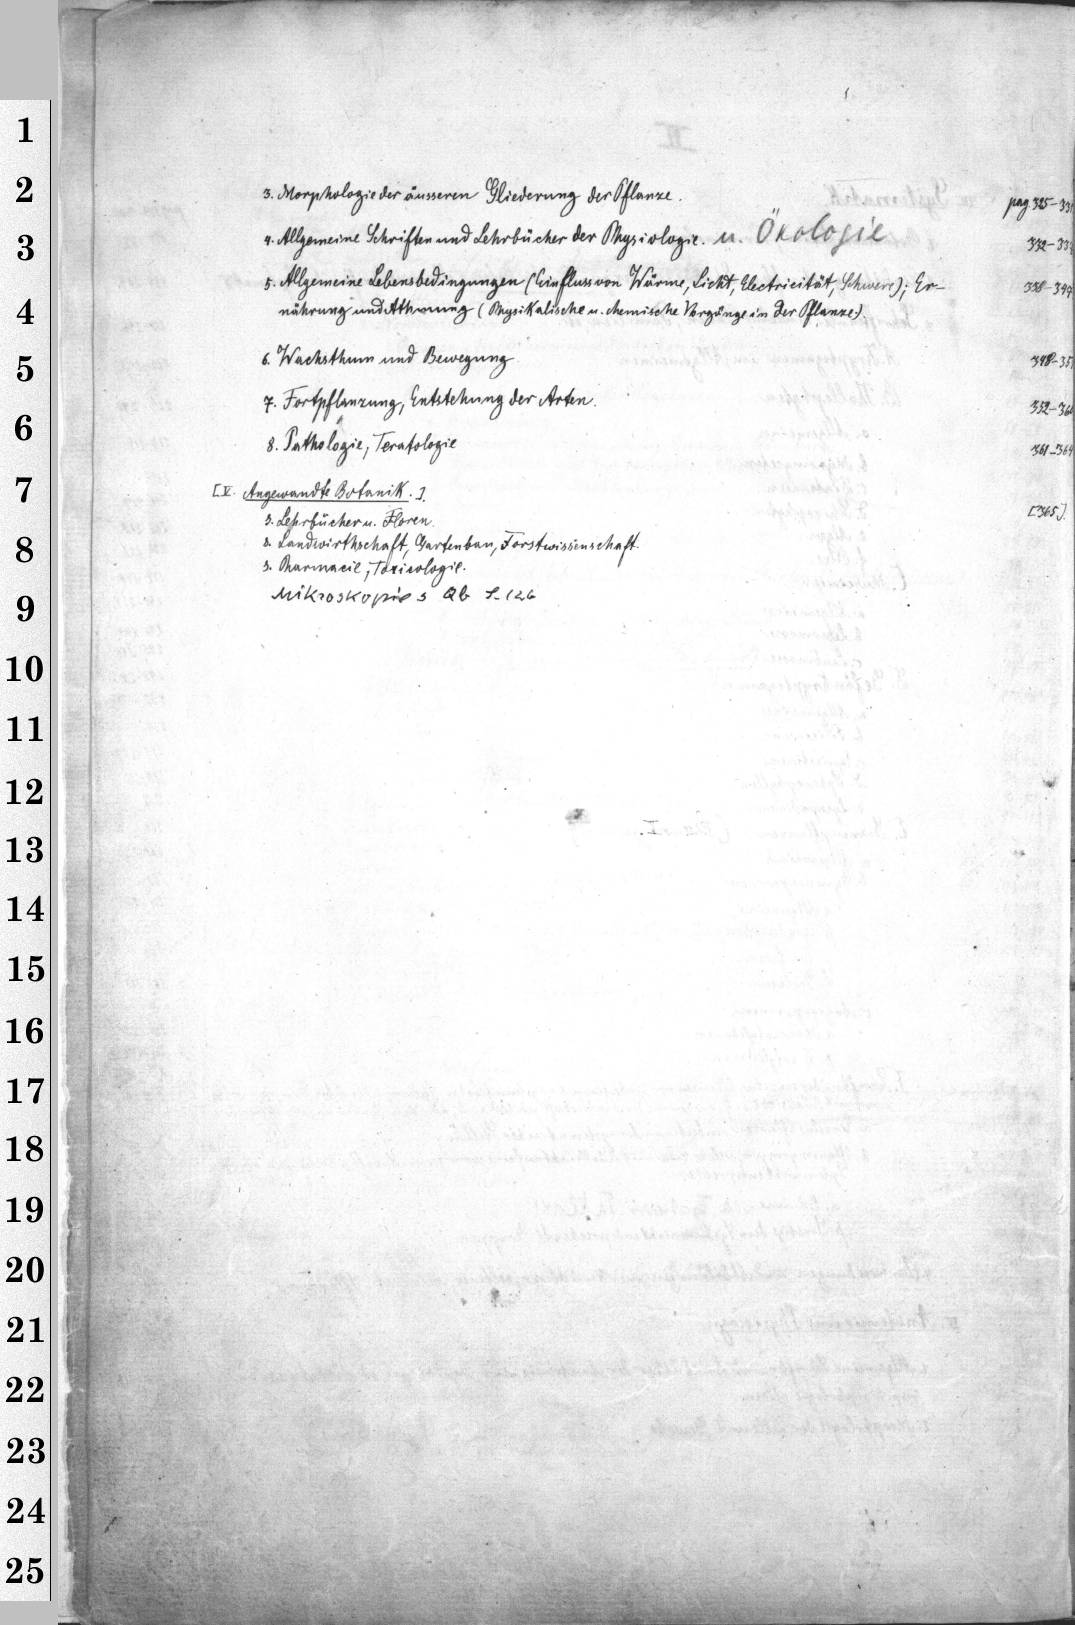 1
2
3
4
5
6
7
8
9
10
11
12
13
14
15
16
17
18
19
20
21
22
23
24
25
3. Morphologie der äusseren Gliederung der Pflanze. pag. 325-331
4. Allgemeine Schriften und Lehrbücher der Physiologie. u. Ökologie 332-33
5. Allgemeine Lebensbedingungen (Einfluss von Wärme, Licht, Electricität, Schwere); Er- 338-347
nährung und Athmung (Physikalische u. chemische Vorgänge in der Pflanze)
6. Wachsthum und Bewegung 348-351
7. Fortpflanzung, Entstehung der Arten. 352-360
8. Pathologie, Teratologie 361-364
[V. Angewandte Botanik.] [365].
Lehrbücher u. Floren.
Landwirthschaft, Gartenbau, Forstwissenschaft.
3. Pharmacie, Toxicologie.
Mikroskopie s Qb S. 126